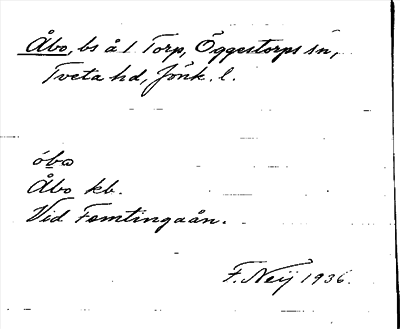 Åbo, bs å 1 Torp, Öggestorps sn,
Tveta hd, Jönk. l.
óbω
Åbo kb.
Vid Femtingaån.
F. Neij 1936.